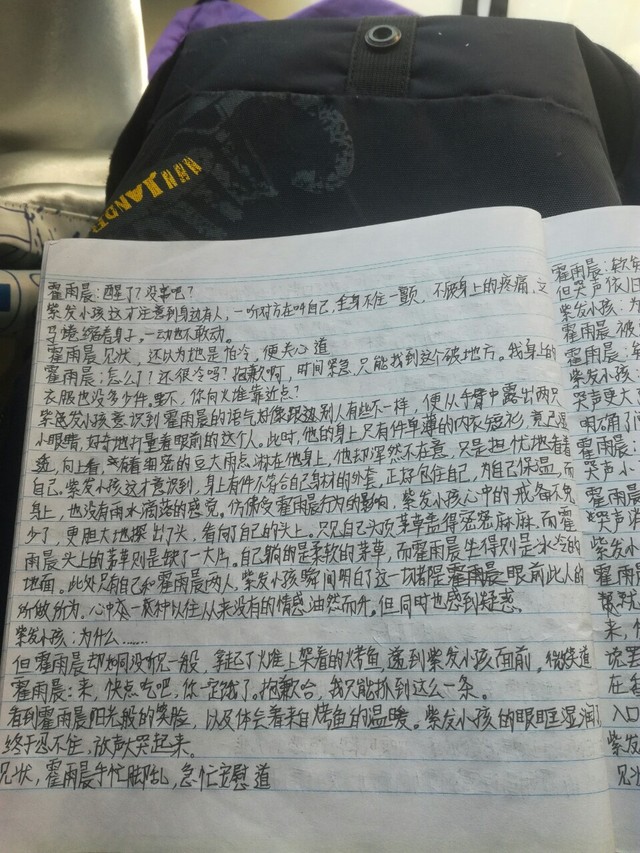 JANDE
霍雨晨:醒了?没事吧?
紫发小孩这才注意到身边有人,一听对方在叫自己,全身不住一颤,不顾身上的疼痛,立
马蜷缩着身子,一动也不敢动。
霍雨晨见状,还以为他是怕冷,便关心道
霍雨晨:怎么了?还很冷吗?抱歉啊,时间紧急,只能找到这个破地方。我身上的
衣服也没多少件。要不,你向火堆靠近点?
紫色发小孩意识到霍雨晨的语气好像跟别人有些不一样,便从手臂中露出两只
小眼睛,好奇地打量着眼前的这个人。此时,他的身上只有件单薄的内衣短衫,竟已湿
透,向上看,有着细密的豆大雨点淋在他身上,他却浑然不在意,只是担忧地看着
自己。紫发小孩这才意识到,身上有件不符合自己身材的外套,正好包住自己,为自己保温,而
身上,也没有雨水滴落的感觉。仿佛受霍雨晨行为的影响,紫发小孩心中的戒备不免
少了,更胆大地探出了头,看向了自己的头上。只见自己头顶茅草盖得密密麻麻,而霍
雨晨头上的茅草则是缺了一大片。自己躺的是柔软的茅草,而霍雨晨坐得则是冰冷的
地面。此处只有自己和霍雨晨两人,紫发小孩瞬间明白了这一切都是霍雨晨眼前此人的
所做所为。心中一种以往从来没有的情感油然而升。但同时也感到疑惑。
紫发小孩:为什么……
但霍雨晨却如同没听见一般,拿起了火堆上架着的烤鱼,递到紫发小孩面前,微笑道
霍雨晨:来,快点吃吧,你一定饿了。抱歉哈,我只能抓到这么一条。
看到霍雨晨阳光般的笑脸,以及体会着来自烤鱼的温暖。紫发小孩的眼眶湿润了
终于忍不住,放声大哭起来。
见状,霍雨晨手忙脚乱,急忙安慰道
霍雨晨:
但哭声依旧
紫发小孩:
霍雨晨被
霍雨晨:
紫发小孩
哭声更大
明确了
霍雨晨:
哭声小
霍雨晨
哭声
紫发小
霍雨晨
紫发小
来,
说罢
在
入口
紫发
见状